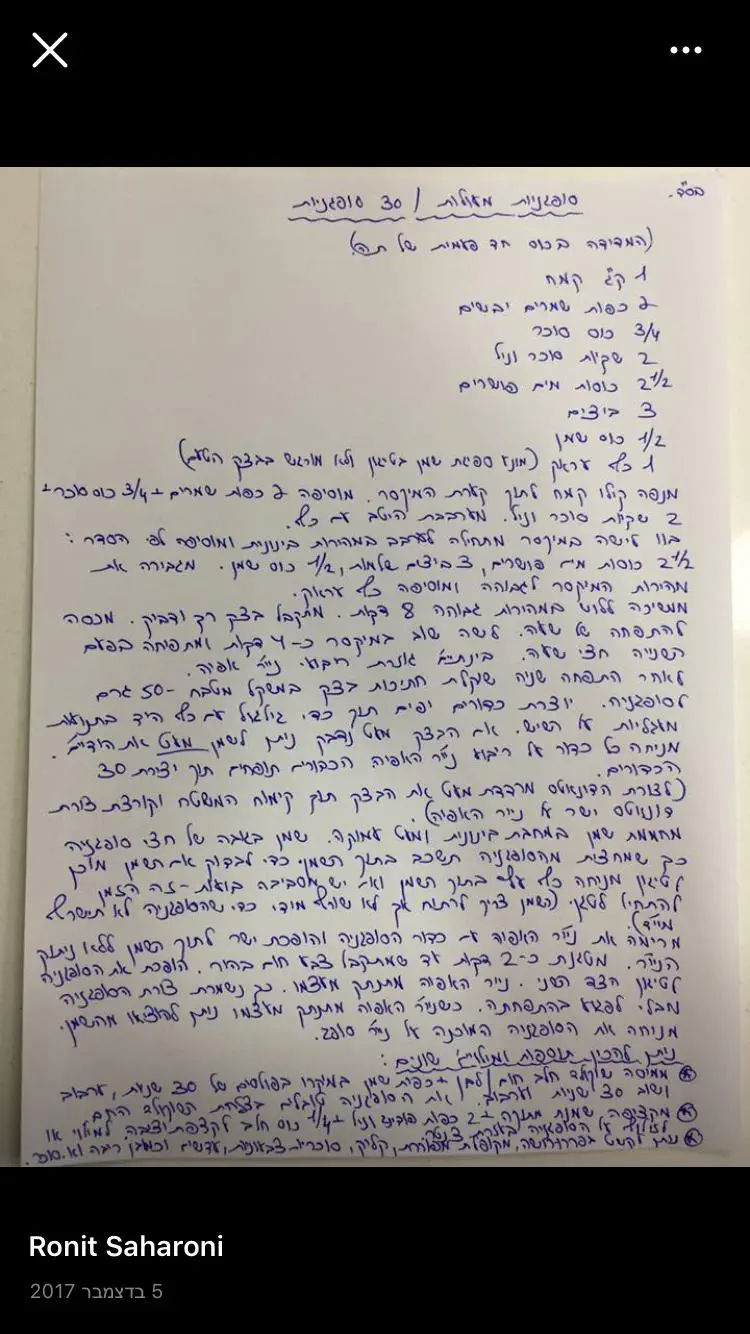 בס"ד.
סופגניות מעולות / 30 סופגניות
(המדידה בכוס חד פעמית של תה)
1 ק"ג קמח
2 כפות שמרים יבשים
3/4 כוס סוכר
2 שקיות סוכר וניל
2 1/2 כוסות מים פושרים
3 ביצים
1/2 כוס שמן
1 כף עראק (מונע ספיגת שמן בטיגון ולא מורגש בבצק הטעם)
מנפה קילו קמח לתוך קערת המיקסר. מוסיפה 2 כפות שמרים + 3/4 כוס סוכר +
2 שקיות סוכר וניל. מערבבת היטב עם כף.
בוו לישה במיקסר מתחילה לערבב במהירות בינונית ומוסיפה לפי הסדר:
2 1/2 כוסות מים פושרים, 3 ביצים שלמות, 1/2 כוס שמן. מגבירה את
מהירות המיקסר לגבוהה ומוסיפה כף עראק.
ממשיכה ללוש במהירות גבוהה 8 דקות. מתקבל בצק רך ודביק. מכסה
להתפחה של שעה. לשה שוב במיקסר כ-4 דקות ומתפיחה בפעם
השנייה חצי שעה. בינתיים גוזרת ריבועי נייר אפיה.
לאחר התפחה שניה שוקלת חתיכות בצק במשקל מטבח -50 גרם
לסופגניה. יוצרת כדורים יפים תוך כדי גילגול עם כף היד בתנועות
מעגליות על השיש. אם הבצק מעט נדבק ניתן לשמן מעט את הידיים.
מניחה כל כדור על ריבוע נייר האפיה הכדורים תופחים תוך יצירת 30
הכדורים.
(לצורת הדונאטס מרדדת מעט את הבצק תוך קימוח המשטח וקורצת צורת
דונאטס ישר על נייר האפיה).
מחממת שמן במחבת בינונית ומעט עמוקה. שמן בגובה של חצי סופגניה
כך שמחצית מהסופגניה תשכב בתוך השמן. כדי לבדוק אם השמן מוכן
לטיגון מניחה כף עץ בתוך השמן ואם יש מסביבה בועות -זה הזמן
להתחיל לטגן. (השמן צריך לרתוח אך לא שורף מידי כדי שהסופגניה לא תישרף
מייד).
מרימה את נייר האפיה עם כדור הסופגניה והופכת ישר לתוך השמן ללא ניתוק
הנייר. מטגנת כ-2 דקות עד שמתקבל צבע חום בהיר. הופכת את הסופגניה
לטיגון הצד השני. נייר האפיה מתנתק מעצמו. כך נשמרת צורת הסופגניה
מבלי לפגוע בהתפחתה. כשנייר האפיה מתנתק מעצמו ניתן להוציאו מהשמן.
מניחה את הסופגניה המוכנה על נייר סופג.
ניתן להכין תוספות ומילויים שונים:
* ממיסה שוקולד חלב חום / לבן + כפית שמן במיקרו בפולסים של 30 שניות, ערבוב
ושוב 30 שניות וערבוב. את הסופגניה טובלים בצלחת השוקולד החם
* מקציפה שמנת מתוקה + 2 כפות פודינג וניל + 1/4 כוס חלב לקצפת יציבה. למילוי או
לזילוף על הסופגניה בעזרת צנטר.
* ניתן לקשט בפרורי, מקופלת מפוררת, קליק, סוכריות צבעוניות, עדשים וכמובן ריבה ואבקת סוכר.
Ronit Saharoni
5 בדצמבר 2017